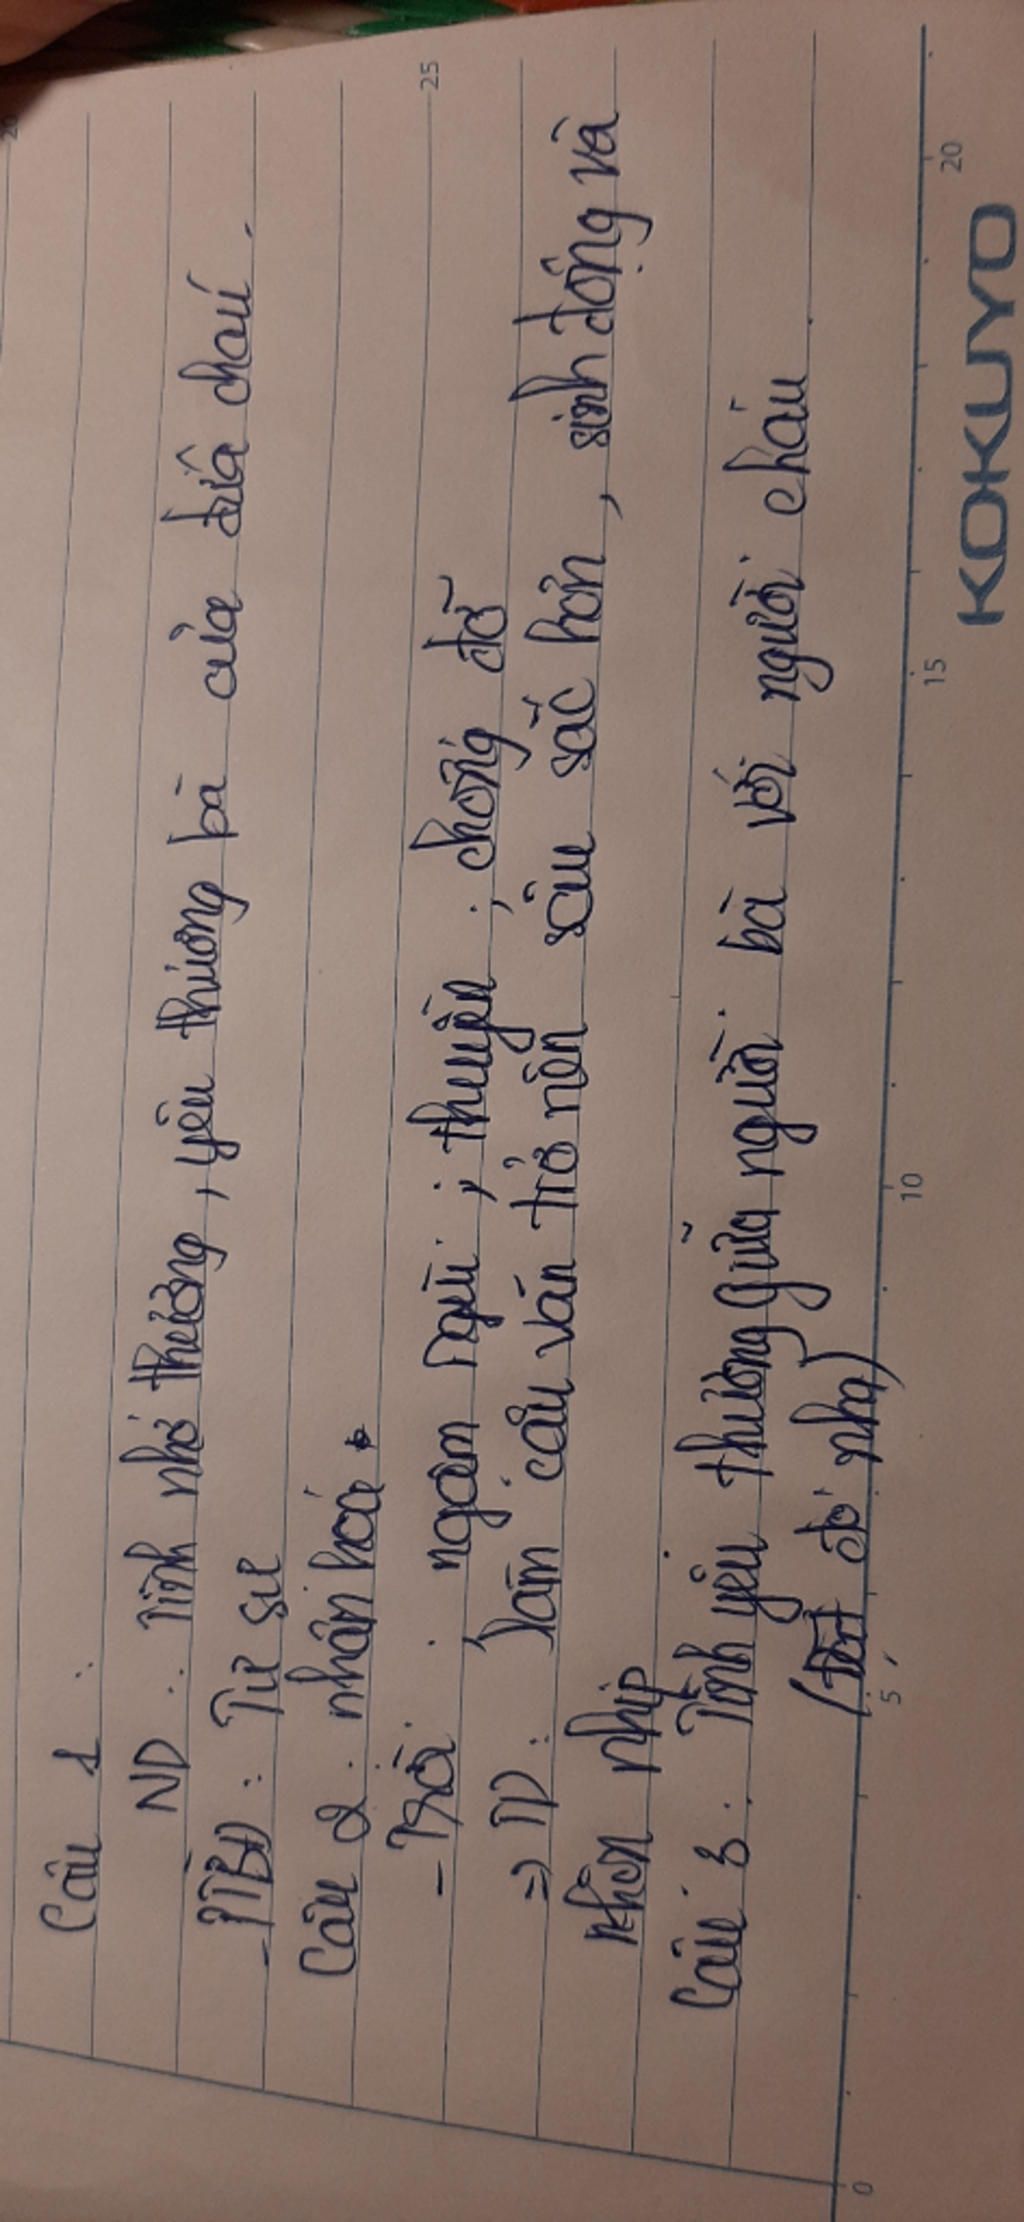 Câu 1 :
ND : Tình nhớ thương, yêu thương bà của đứa cháu.
- PTBĐ : Tự sự
Câu 2 : nhân hoá
- Trời : ngậm ngùi ; thuyền ; chống đỡ
=> TD : Làm câu văn trở nên sâu sắc hơn, sinh động và
nhộn nhịp
Câu 3 : Tình yêu thương giữa người bà với người cháu
( đó nha)
25
0 5 10 15 20
KOKUYO